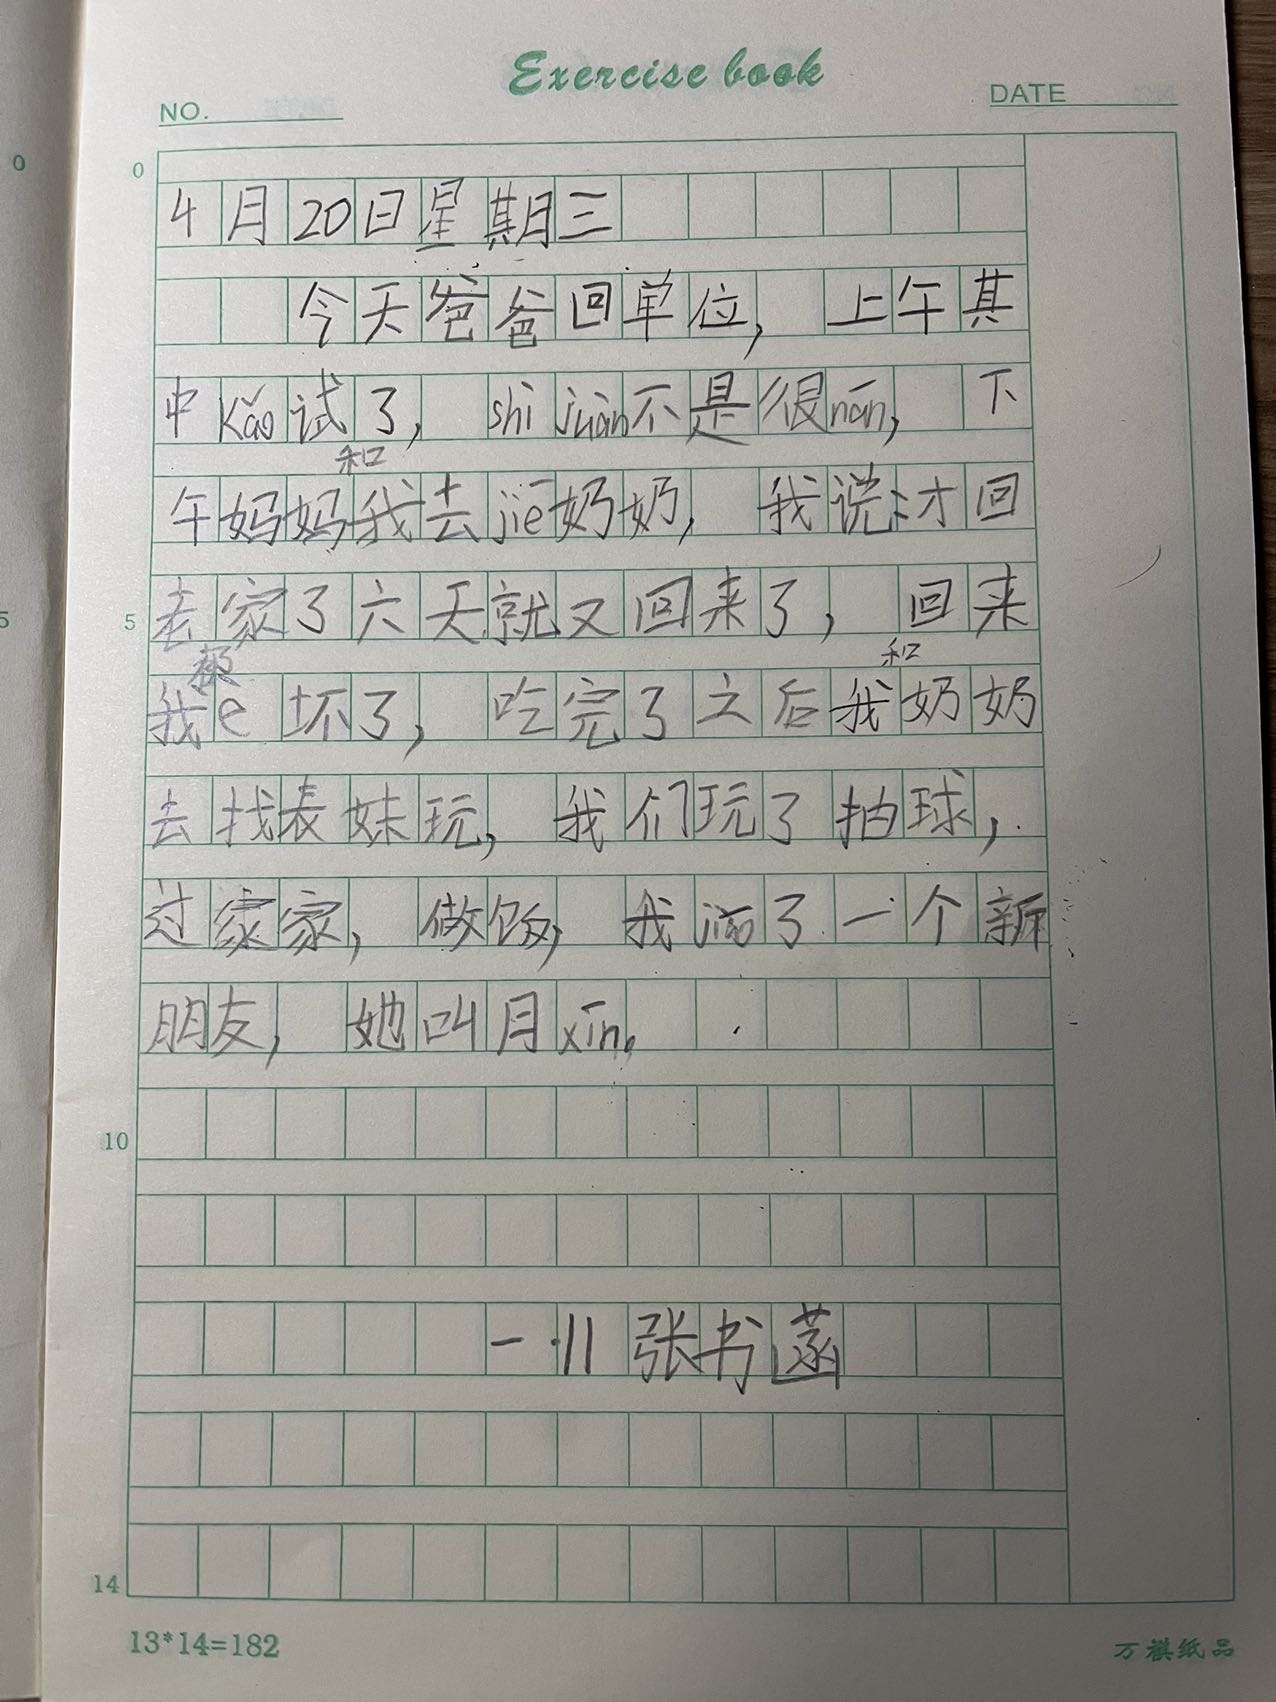 Exercise book
NO.
DATE
0
0
4月20日星期三
今天爸爸回单位，上午其
中kǎo试了，shì juàn不是很nán，下
和
午妈妈我去jiē奶奶，我说才回
5
5
老家了六天就又回来了，回来
都
和
我e坏了，吃完了之后我奶奶
去找表妹玩，我们玩了拍球，
过家家，做饭，我jiāo了一个新
朋友，她叫月xīn。
10
一·11 张书菡
14
13*14=182
万祺纸品